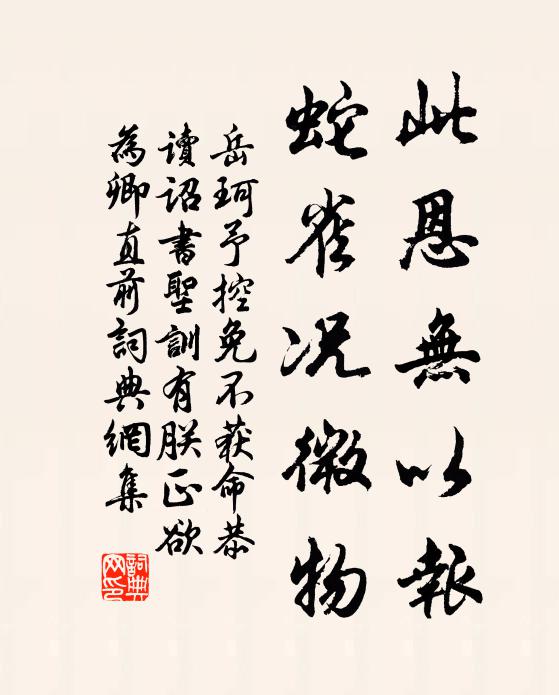 此恩無以報
蛇雀況微物
岳珂予控免不获命恭
讀詔書聖訓有朕正欲
為卿直前詞典網集
詞典網印